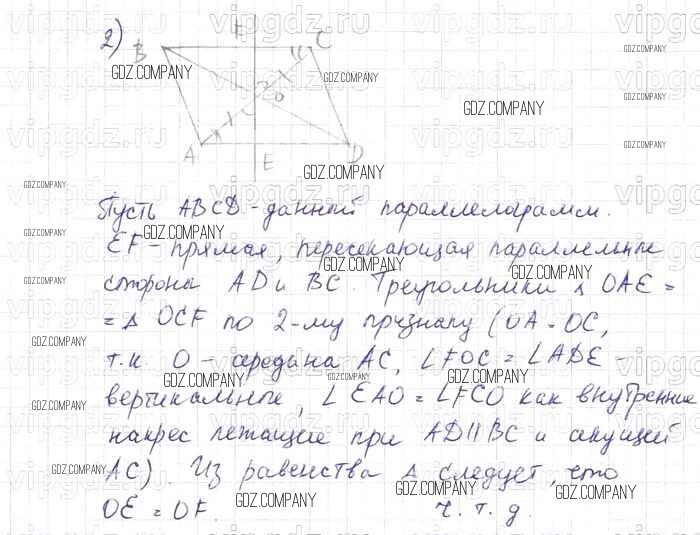 2)
B F C
O
A E D
Пусть ABCD - данный параллелограмм.
EF - прямая, пересекающая параллельные
стороны AD и BC. Треугольники Δ OAE =
= Δ OCF по 2-му признаку (OA = OC,
т.к. O - середина AC, ∠FOC = ∠AOE -
вертикальные, ∠EAO = ∠FCO как внутренние
накрест лежащие при AD || BC и секущей
AC). Из равенства Δ следует, что
OE = OF. ч.т.д.
GDZ.COMPANY
vipgdz.ru